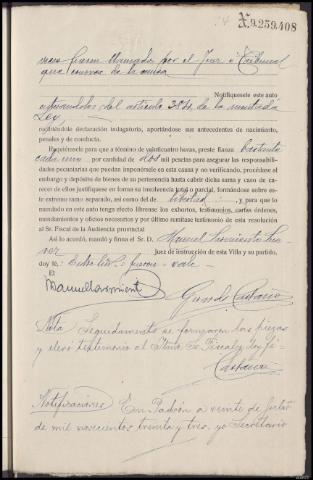 X.9.259.408
fueren llamados por el Juez o Tribunal
que conoce de la causa
Notifíquesele este auto
del artículo 384 de la
Ley,
recibiéndole declaración indagatoria, aportándose sus antecedentes de nacimiento,
penales y de conducta.
Requiérasele para que a término de veinticuatro horas, preste fianza bastante
cada uno por cantidad de dos mil pesetas para asegurar las responsabili-
dades pecuniarias que puedan imponérsele en esta causa y no verificándolo, procédase al
embargo y depósito de bienes de su pertenencia hasta cubrir dicha suma y caso de ca-
recer de ellos justifíquese en forma su insolvencia total o parcial, formándose sobre es-
te extremo ramo separado, así como del de libertad, y para que lo
mandado en este auto tenga efecto líbrense los exhortos, testimonios, cartas órdenes,
mandamientos y oficios necesarios y por último remítase testimonio de esta resolución
al Sr. Fiscal de la Audiencia provincial
Así lo acordó, mandó y firma el Sr. D. Manuel
Juez de instrucción de esta Villa y su partido,
doy fé. Entre líneas vale
El
Nota Seguidamente se formaron las piezas
y elevé testimonio al Iltmo Sr Fiscal y doy fé.
Notificaciones En Padrón a veinte de
de mil novecientos treinta y tres, yo Secretario